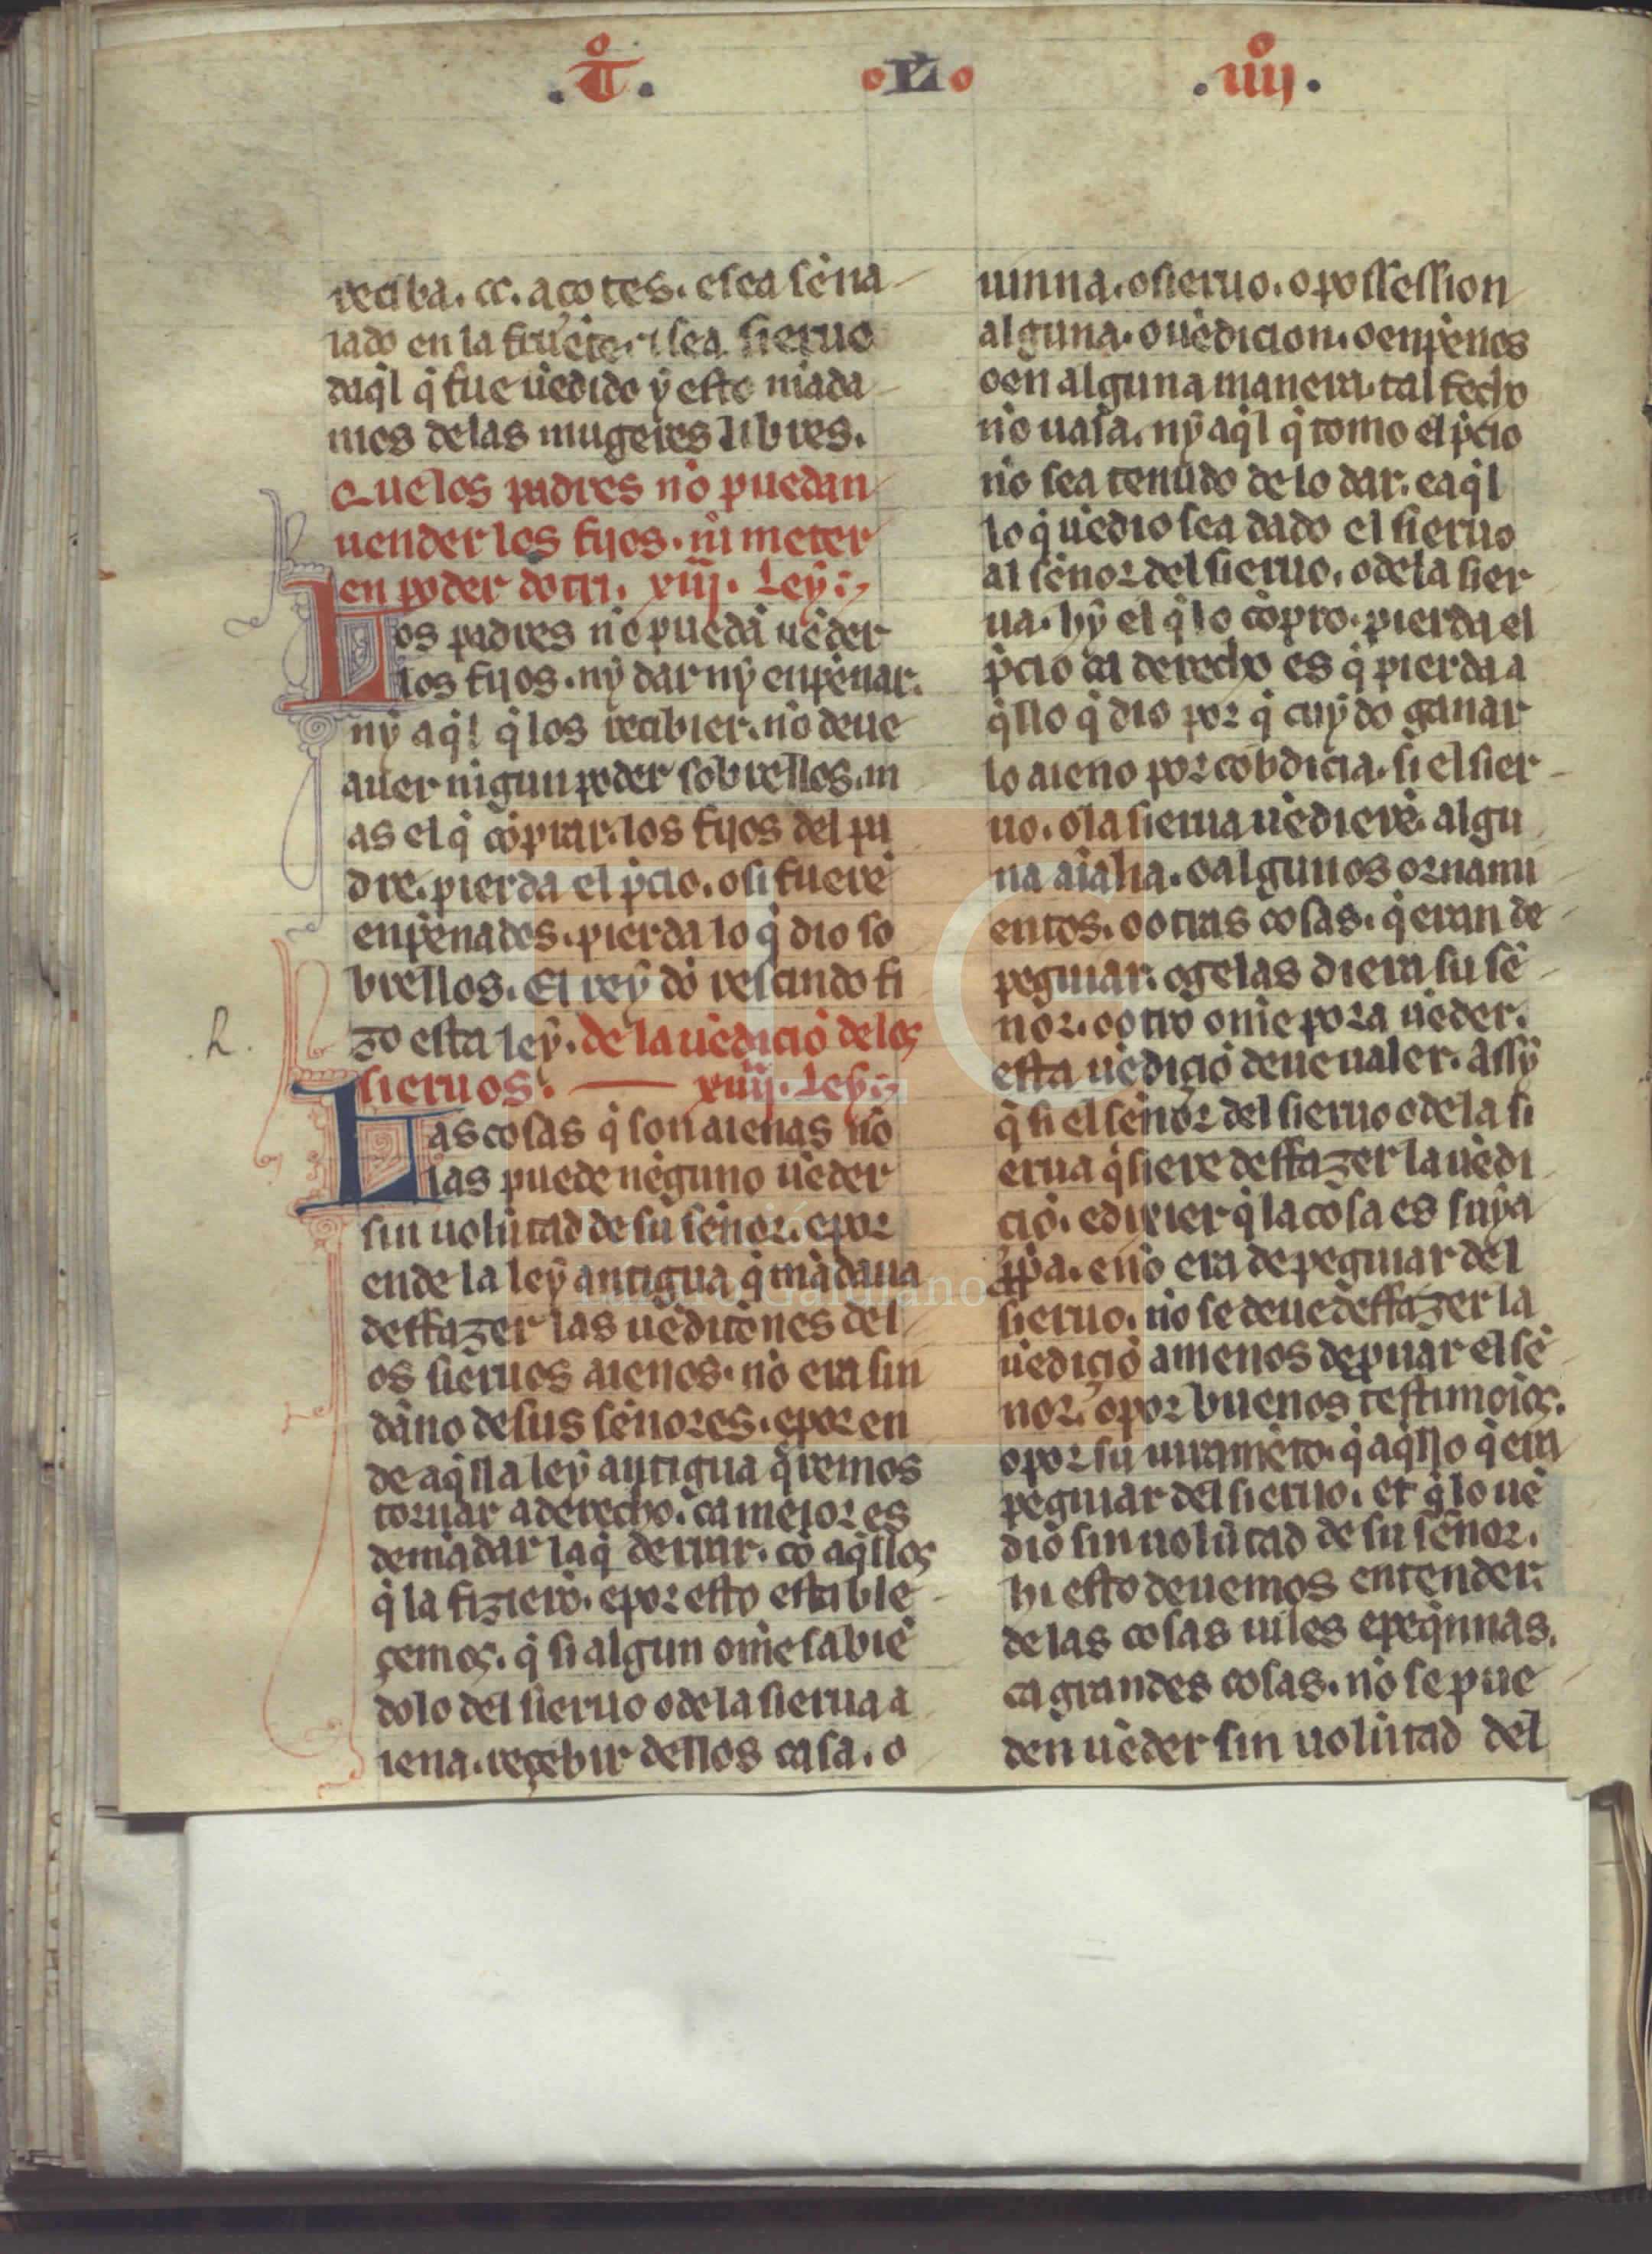 .T̊. ·L· .iiıj̊.
reciba. cc. açotes. e sea sen̄a
lado en la fruēte. τ sea sieruo
daq̄l q̄ fue uēdido ẏ esto mādā
mos delas mugeres libres.
Que los padres nō puedan
uender los fijos. nī meter
en poder dotri. xiij. Leẏ:
Los padres nō puedā uēder
los fijos. nẏ dar nẏ enpēnar.
nẏ aq̄l q̄ los recibier. nō deue
auer nīgun poder sobrellos. m
as el q̄ cōprar. los fijos del pa
dre. pierda el p̄cio. o si fuerē
enpēnados. pierda lo q̄ dio so
brellos. El reẏ dō rescindo fi
zo esta leẏ. de la uēdiciō de los
.h.
sieruos. xiiij. Leẏ:
Las cosas q̄ son aienas nō
las puede nēguno uēder
sin uolūtad de su sēnor. e por
ende la leẏ antigua q̄ mādaua
deffazer las uēdiciōnes del
os sieruos aienos. nō era sin
dāno de sus sēnores. e por en
de aq̄lla leẏ antigua q̄remos
tornar a derecho. ca meior es
demādar la q̄ derrar. cō aq̄llos
q̄ la fizierō. e por esto estable
çemos. q̄ si algun om̄e sabiē
dolo del sieruo o de la sierua a
iena. reçebir dellos casa. o
uinna. o sieruo. o possession
alguna. o uēdicion. o enpēnos
o en alguna manera. tal fecho
nō uala. nẏ aq̄l q̄ tomo el p̄cio
nō sea tenudo de lo dar. e aq̄l
lo q̄ uēdio sea dado el sieruo
al sēnor del sieruo. o de la sier
ua. hẏ el q̄ lo cōpro. pierda el
p̄cio ca derecho es q̄ pierda a
q̄llo q̄ dio por q̄ cuẏdo ganar
lo aieno por cobdicia. si el sier
uo. o la sierua uēdierē. algu
na aīalia. o algunos ornami
entos. o otras cosas. q̄ eran de
peguiar. o ge las diera su sē
nor. o otro om̄e pora uēder.
esta uēdiçiō deue ualer. assẏ
q̄ si el sēnor del sieruo o de la si
erua q̄siere deffazer la uēdi
ciō. e dixier q̄ la cosa es suẏa
p̄pa. e nō era de peguiar del
sieruo. nō se deue deffazer la
uēdiçiō a menos de p̄uar el sē
nor. o por buenos testimoīos.
o por su iuramēto. q̄ aq̄llo q̄ era
peguiar del sieruo. et q̄ lo uē
dio sin uolūtad de su sēnor.
hi esto deuemos entender.
de las cosas uiles e peq̄nnas.
ca grandes cosas. nō se pue
den uēder sin uolūtad del